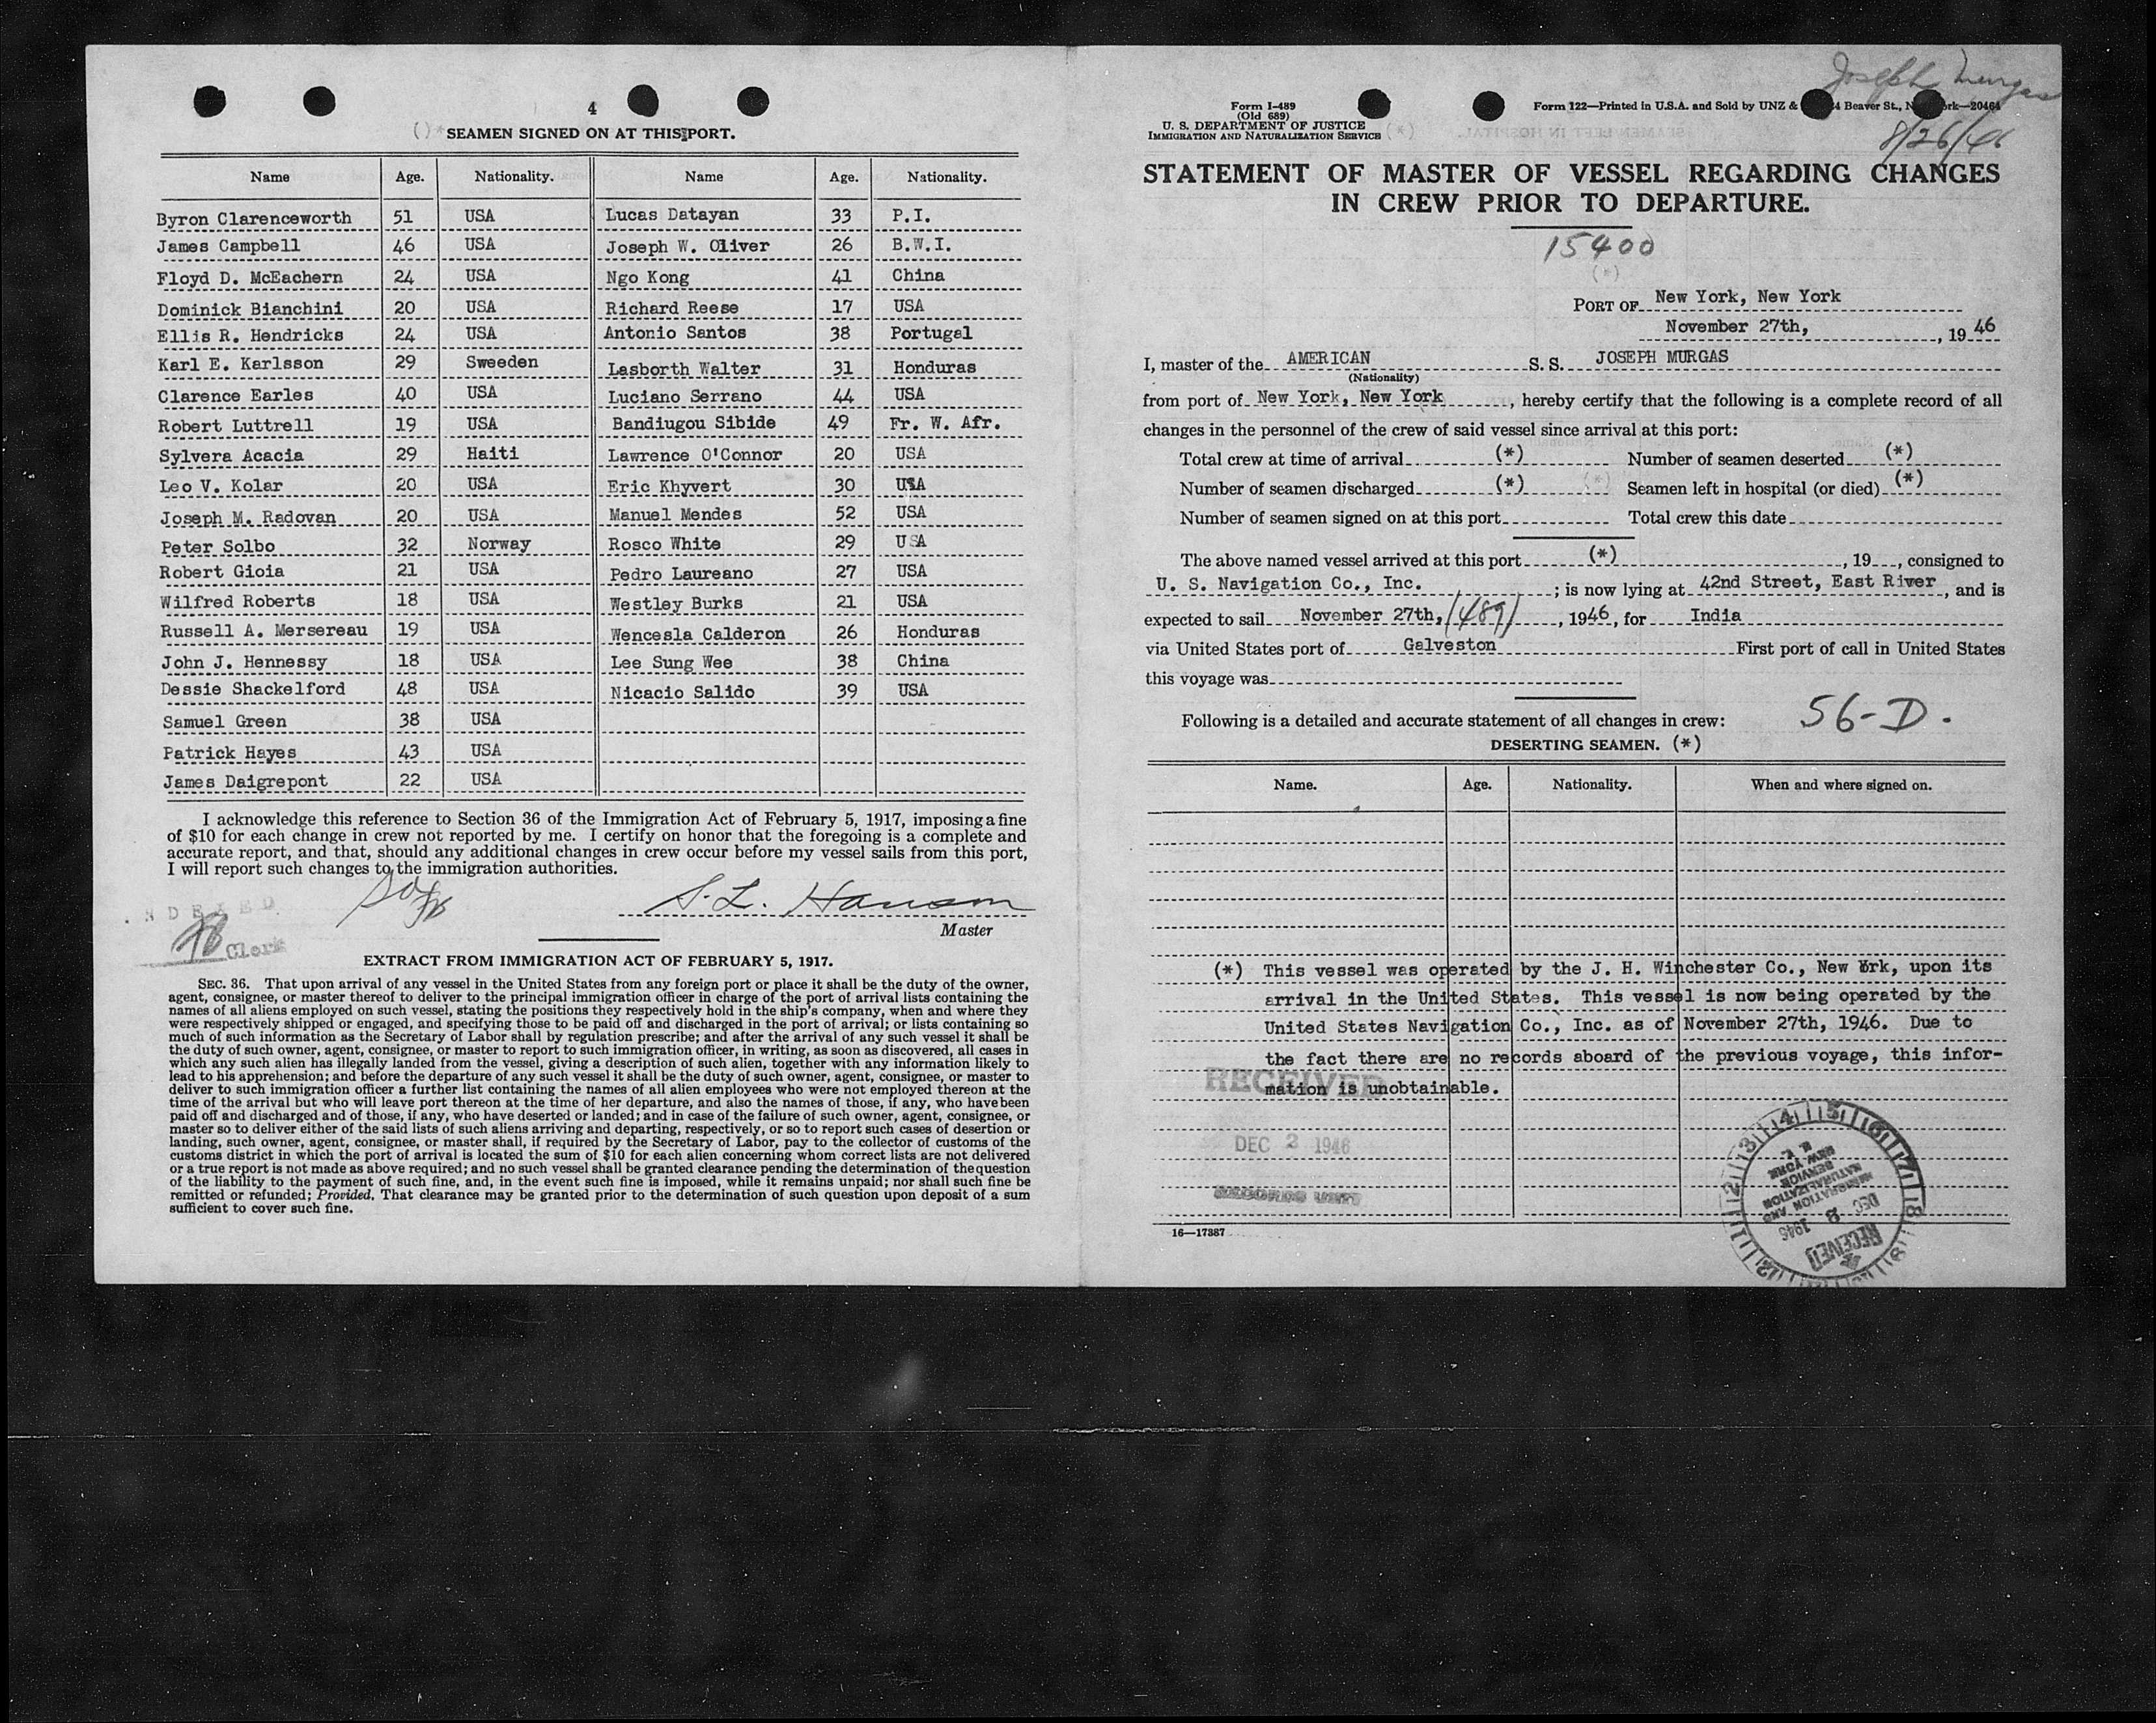 4
SEAMEN SIGNED ON AT THIS PORT.
Name Age. Nationality. Name Age. Nationality.
Byron Clarenceworth 51 USA Lucas Datayan 33 P.I.
James Campbell 46 USA Joseph W. Oliver 26 B.W.I.
Floyd D. McEachern 24 USA Ngo Kong 41 China
Dominick Bianchini 20 USA Richard Reese 17 USA
Ellis R. Hendricks 24 USA Antonio Santos 38 Portugal
Karl E. Karlsson 29 Sweeden Lasborth Walter 31 Honduras
Clarence Earles 40 USA Luciano Serrano 44 USA
Robert Luttrell 19 USA Bandiugou Sibide 49 Fr. W. Afr.
Sylvera Acacia 29 Haiti Lawrence O'Connor 20 USA
Leo V. Kolar 20 USA Eric Khyvert 30 USA
Joseph M. Radovan 20 USA Manuel Mendes 52 USA
Peter Solbo 32 Norway Rosco White 29 USA
Robert Gioia 21 USA Pedro Laureano 27 USA
Wilfred Roberts 18 USA Westley Burks 21 USA
Russell A. Mersereau 19 USA Wencesla Calderon 26 Honduras
John J. Hennessy 18 USA Lee Sung Wee 38 China
Dessie Shackelford 48 USA Nicacio Salido 39 USA
Samuel Green 38 USA
Patrick Hayes 43 USA
James Daigrepont 22 USA
I acknowledge this reference to Section 36 of the Immigration Act of February 5, 1917, imposing a fine
of $10 for each change in crew not reported by me. I certify on honor that the foregoing is a complete and
accurate report, and that, should any additional changes in crew occur before my vessel sails from this port,
I will report such changes to the immigration authorities.
S. L. Hanson
Master
INDEXED
Clerk
EXTRACT FROM IMMIGRATION ACT OF FEBRUARY 5, 1917.
SEC. 36. That upon arrival of any vessel in the United States from any foreign port or place it shall be the duty of the owner,
agent, consignee, or master thereof to deliver to the principal immigration officer in charge of the port of arrival lists containing the
names of all aliens employed on such vessel, stating the positions they respectively hold in the ship's company, when and where they
were respectively shipped or engaged, and specifying those to be paid off and discharged in the port of arrival; or lists containing so
much of such information as the Secretary of Labor shall by regulation prescribe; and after the arrival of any such vessel it shall be
the duty of such owner, agent, consignee, or master to report to such immigration officer, in writing, as soon as discovered, all cases in
which any such alien has illegally landed from the vessel, giving a description of such alien, together with any information likely to
lead to his apprehension; and before the departure of any such vessel it shall be the duty of such owner, agent, consignee, or master to
deliver to such immigration officer a further list containing the names of all alien employees who were not employed thereon at the
time of the arrival but who will leave port thereon at the time of her departure, and also the names of those, if any, who have been
paid off and discharged and of those, if any, who have deserted or landed; and in case of the failure of such owner, agent, consignee, or
master so to deliver either of the said lists of such aliens arriving and departing, respectively, or so to report such cases of desertion or
landing, such owner, agent, consignee, or master shall, if required by the Secretary of Labor, pay to the collector of customs of the
customs district in which the port of arrival is located the sum of $10 for each alien concerning whom correct lists are not delivered
or a true report is not made as above required; and no such vessel shall be granted clearance pending the determination of the question
of the liability to the payment of such fine, and, in the event such fine is imposed, while it remains unpaid; nor shall such fine be
remitted or refunded; Provided, That clearance may be granted prior to the determination of such question upon deposit of a sum
sufficient to cover such fine.
Joseph Murgas
8/26/46
Form I-489
(Old 689)
U. S. DEPARTMENT OF JUSTICE
IMMIGRATION AND NATURALIZATION SERVICE
Form 122—Printed in U.S.A. and Sold by UNZ & Beaver St., 20464
STATEMENT OF MASTER OF VESSEL REGARDING CHANGES
IN CREW PRIOR TO DEPARTURE.
15400
PORT OF New York, New York
November 27th, , 19 46
I, master of the AMERICAN S. S. JOSEPH MURGAS
(Nationality)
from port of New York, New York , hereby certify that the following is a complete record of all
changes in the personnel of the crew of said vessel since arrival at this port:
Total crew at time of arrival (*) Number of seamen deserted (*)
Number of seamen discharged (*) Seamen left in hospital (or died) (*)
Number of seamen signed on at this port Total crew this date
The above named vessel arrived at this port (*) , 19 , consigned to
U. S. Navigation Co., Inc. ; is now lying at 42nd Street, East River , and is
expected to sail November 27th, (489) , 1946, for India
via United States port of Galveston First port of call in United States
this voyage was
Following is a detailed and accurate statement of all changes in crew: 56-D.
DESERTING SEAMEN. (*)
Name. Age. Nationality. When and where signed on.
(*) This vessel was operated by the J. H. Winchester Co., New York, upon its
arrival in the United States. This vessel is now being operated by the
United States Navigation Co., Inc. as of November 27th, 1946. Due to
the fact there are no records aboard of the previous voyage, this infor-
mation is unobtainable.
RECEIVED
DEC 2 1946
RECORDS UNIT
16—17387
RECEIVED
DEC 2 1946
IMMIGRATION AND
NATURALIZATION
SERVICE
NEW YORK
N. Y.